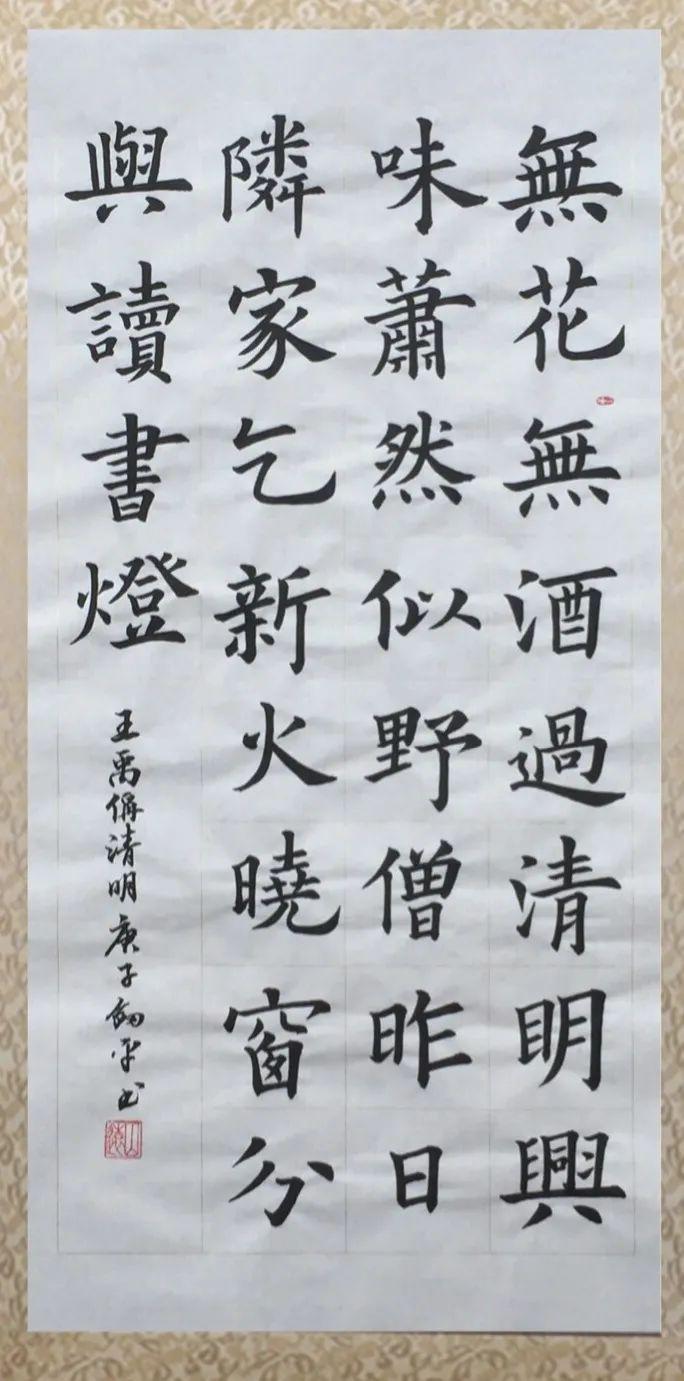 無花無酒過清明興
味蕭然似野僧昨日
隣家乞新火曉窗分
與讀書燈
王禹偁清明庚子劍平书